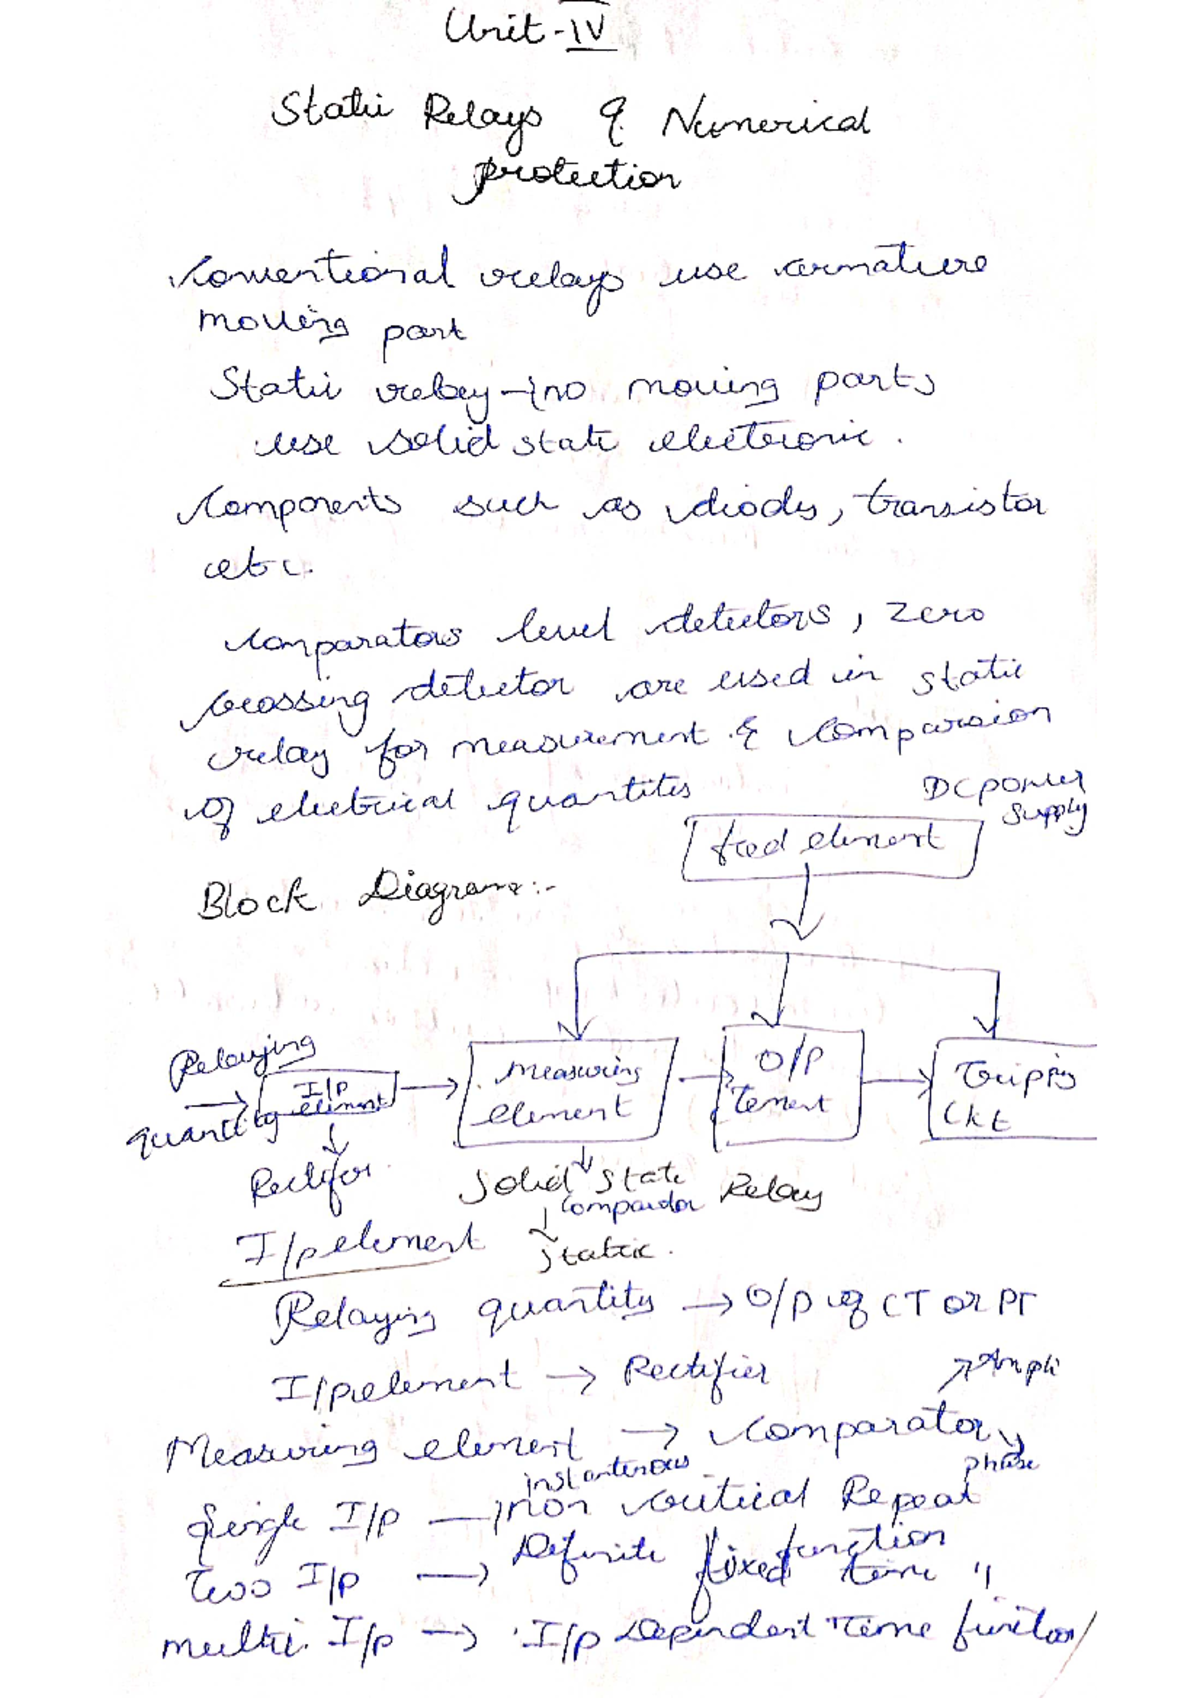 Unit-IV
Static Relays & Numerical
protection
Conventional relays use armature
moving part
Static relay → no moving parts
use solid state electronic.
Components such as diodes, transistor
etc.
Comparators level detectors, zero
crossing detector are used in static
relay for measurement & Comparsion
of electrical quantites
DC power
supply
feed element
Block Diagram:-
Relaying
quantity
I/p
element
Measuring
element
O/P
Tripping
Ckt
Rectifer
Solid state Relay
Comparator
Static.
I/p element
Relaying quantity → O/p of CT or PT
I/p element → Rectifier
Measuring element → Comparator
Ampli
phase
instanterous
Single I/p → non critical Repeat
function
Two I/p → Definite fixed time "
multi I/p → I/p Dependent Time function